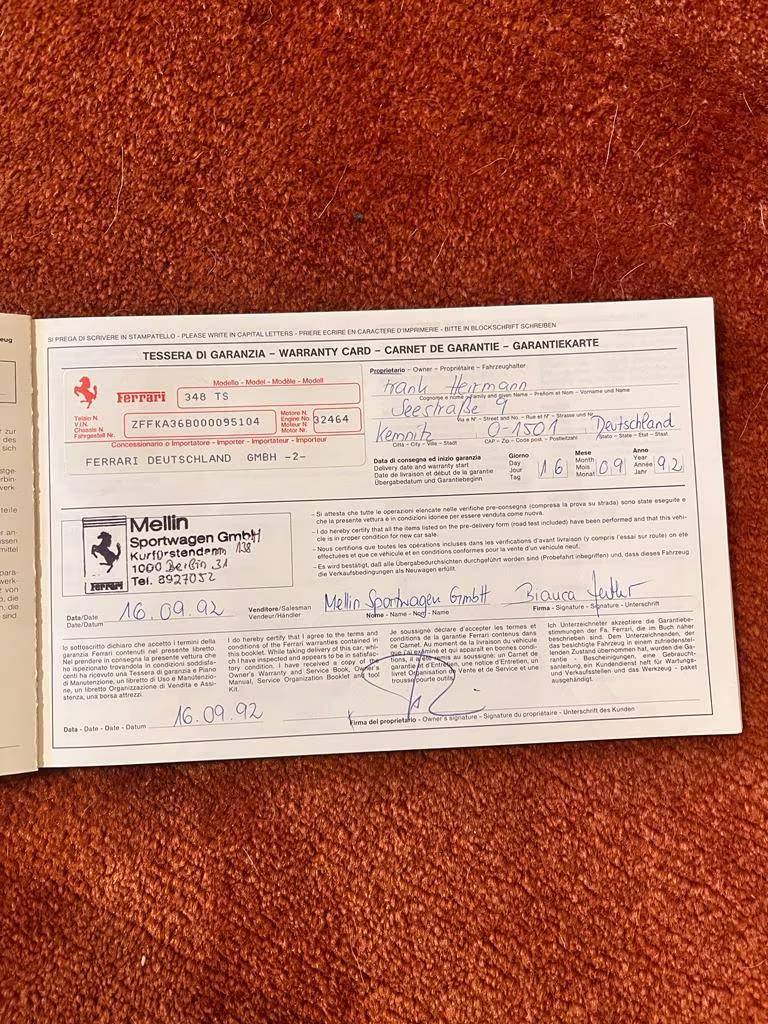 SI PREGA DI SCRIVERE IN STAMPATELLO - PLEASE WRITE IN CAPITAL LETTERS - PRIERE ECRIRE EN CARACTERE D'IMPRIMERIE - BITTE IN BLOCKSCHRIFT SCHREIBEN
TESSERA DI GARANZIA – WARRANTY CARD – CARNET DE GARANTIE – GARANTIEKARTE
Ferrari
Modello - Model - Modèle - Modell
348 TS
Telaio N.
V.I.N.
Chassis N.
Fahrgestell Nr.
ZFFKA36B000095104
Motore N.
Engine No.
Moteur N.
Motor Nr.
32464
Concessionario o Importatore - Importer - Importateur - Importeur
FERRARI DEUTSCHLAND GMBH -2-
Proprietario - Owner - Propriétaire - Fahrzeughalter
Frank Herrmann
Cognome e nome - Family and given Name - Prénom et Nom - Vorname und Name
Seestraße 9
Via e N° - Street and No. - Rue et N° - Strasse und Nr.
Kemnitz O-1501 Deutschland
Città - City - Ville - Stadt CAP - Zip - Code post. - Postleitzahl Stato - State - Etat - Staat
Data di consegna ed inizio garanzia
Delivery date and warranty start
Date de livraison et début de la garantie
Übergabedatum und Garantiebeginn
Giorno
Day
Jour
Tag
16
Mese
Month
Mois
Monat
09
Anno
Year
Année
Jahr
92
Mellin
Sportwagen GmbH
Kurfürstendamm 138
1000 Berlin 31
Tel. 8927052
Ferrari
– Si attesta che tutte le operazioni elencate nelle verifiche pre-consegna (compresa la prova su strada) sono state eseguite e
che la presente vettura è in condizioni idonee per essere venduta come nuova.
– I do hereby certify that all the items listed on the pre-delivery form (road test included) have been performed and that this vehi-
cle is in proper condition for new car sale.
– Nous certifions que toutes les opérations incluses dans les vérifications d'avant livraison (y compris l'essai sur route) on été
effectuées et que ce véhicule et en conditions conformes pour la vente d'un véhicule neuf.
– Es wird bestätigt, daß alle Übergabedurchsichten durchgeführt worden sind (Probefahrt inbegriffen) und, dass dieses Fahrzeug
die Verkaufsbedingungen als Neuwagen erfüllt.
Data/Date
Date/Datum
16.09.92
Venditore/Salesman
Vendeur/Händler
Mellin Sportwagen GmbH Bianca
Nome - Name - Nom - Name Firma - Signature - Signature - Unterschrift
Io sottoscritto dichiaro che accetto i termini della
garanzia Ferrari contenuti nel presente libretto.
Nel prendere in consegna la presente vettura che
ho ispezionato trovandola in condizioni soddisfa-
centi ha ricevuto una Tessera di garanzia e Piano
di Manutenzione, un libretto di Uso e Manutenzio-
ne, un libretto Organizzazione di Vendita e Assi-
stenza, una borsa attrezzi.
I do hereby certify that I agree to the terms and
conditions of the Ferrari warranties contained in
this booklet. While taking delivery of this car, whi-
ch I have inspected and appears to be in satisfac-
tory condition. I have received a copy of the
Owner's Warranty and Service Book, Owner's
Manual, Service Organization Booklet and tool
Kit.
Je soussigné déclare d'accepter les termes et
conditions de la garantie Ferrari contenus dans
ce Carnet. Au moment de la livraison du véhicule
que j'ai examiné et qui apparaît en bonnes condi-
tions, il a été remis au soussigné: un Carnet de
garantie et d'Entretien, une notice d'Entretien, un
livret Organisation de Vente et de Service et une
trousse porte outils.
Ich Unterzeichneter akzeptiere die Garantiebe-
stimmungen der Fa. Ferrari, die im Buch näher
beschrieben sind. Dem Unterzeichnenden, der
das besichtigte Fahrzeug in einem zufriedenstel-
lenden Zustand übernommen hat, wurden die Ga-
rantie - Bescheinigungen, eine Gebrauch-
sanleitung, ein Kundendienst heft für Wartungs-
und Verkaufsstellen und das Werkzeug - paket
ausgehändigt.
Data - Date - Date - Datum 16.09.92
Firma del proprietario - Owner's signature - Signature du propriétaire - Unterschrift des Kunden